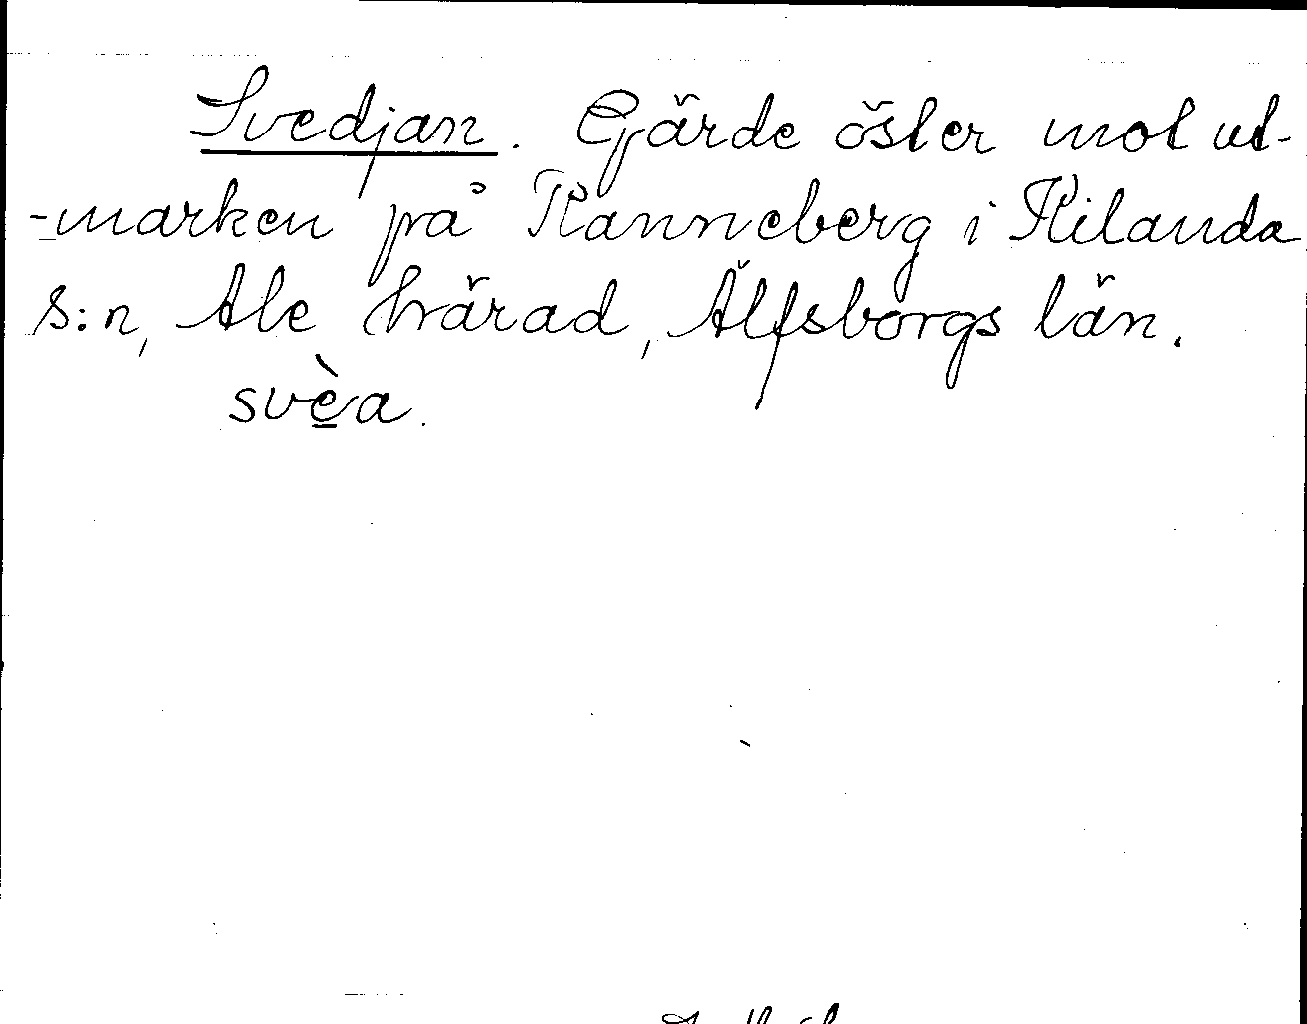 Svedjan. Gärde öster mot ut-
-marken på Ranneberg i Kilanda
s:n, Ale härad, Älfsborgs län.
svèa.